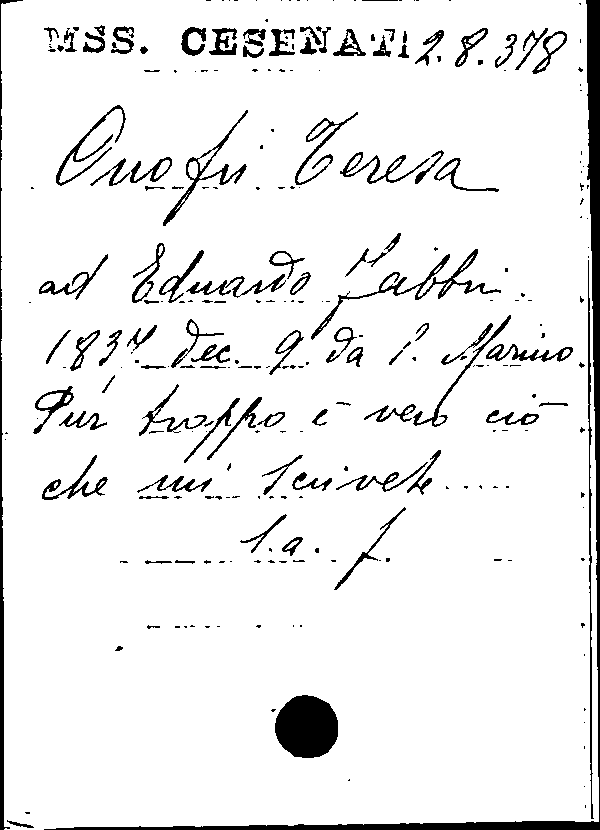 MSS. CESENATI 2.8.378
Onofri Teresa
ad Eduardo Fabbri.
1837. dec. 9 da S. Marino
Pur troppo è vero ciò
che mi scrivete.....
S. a. f.